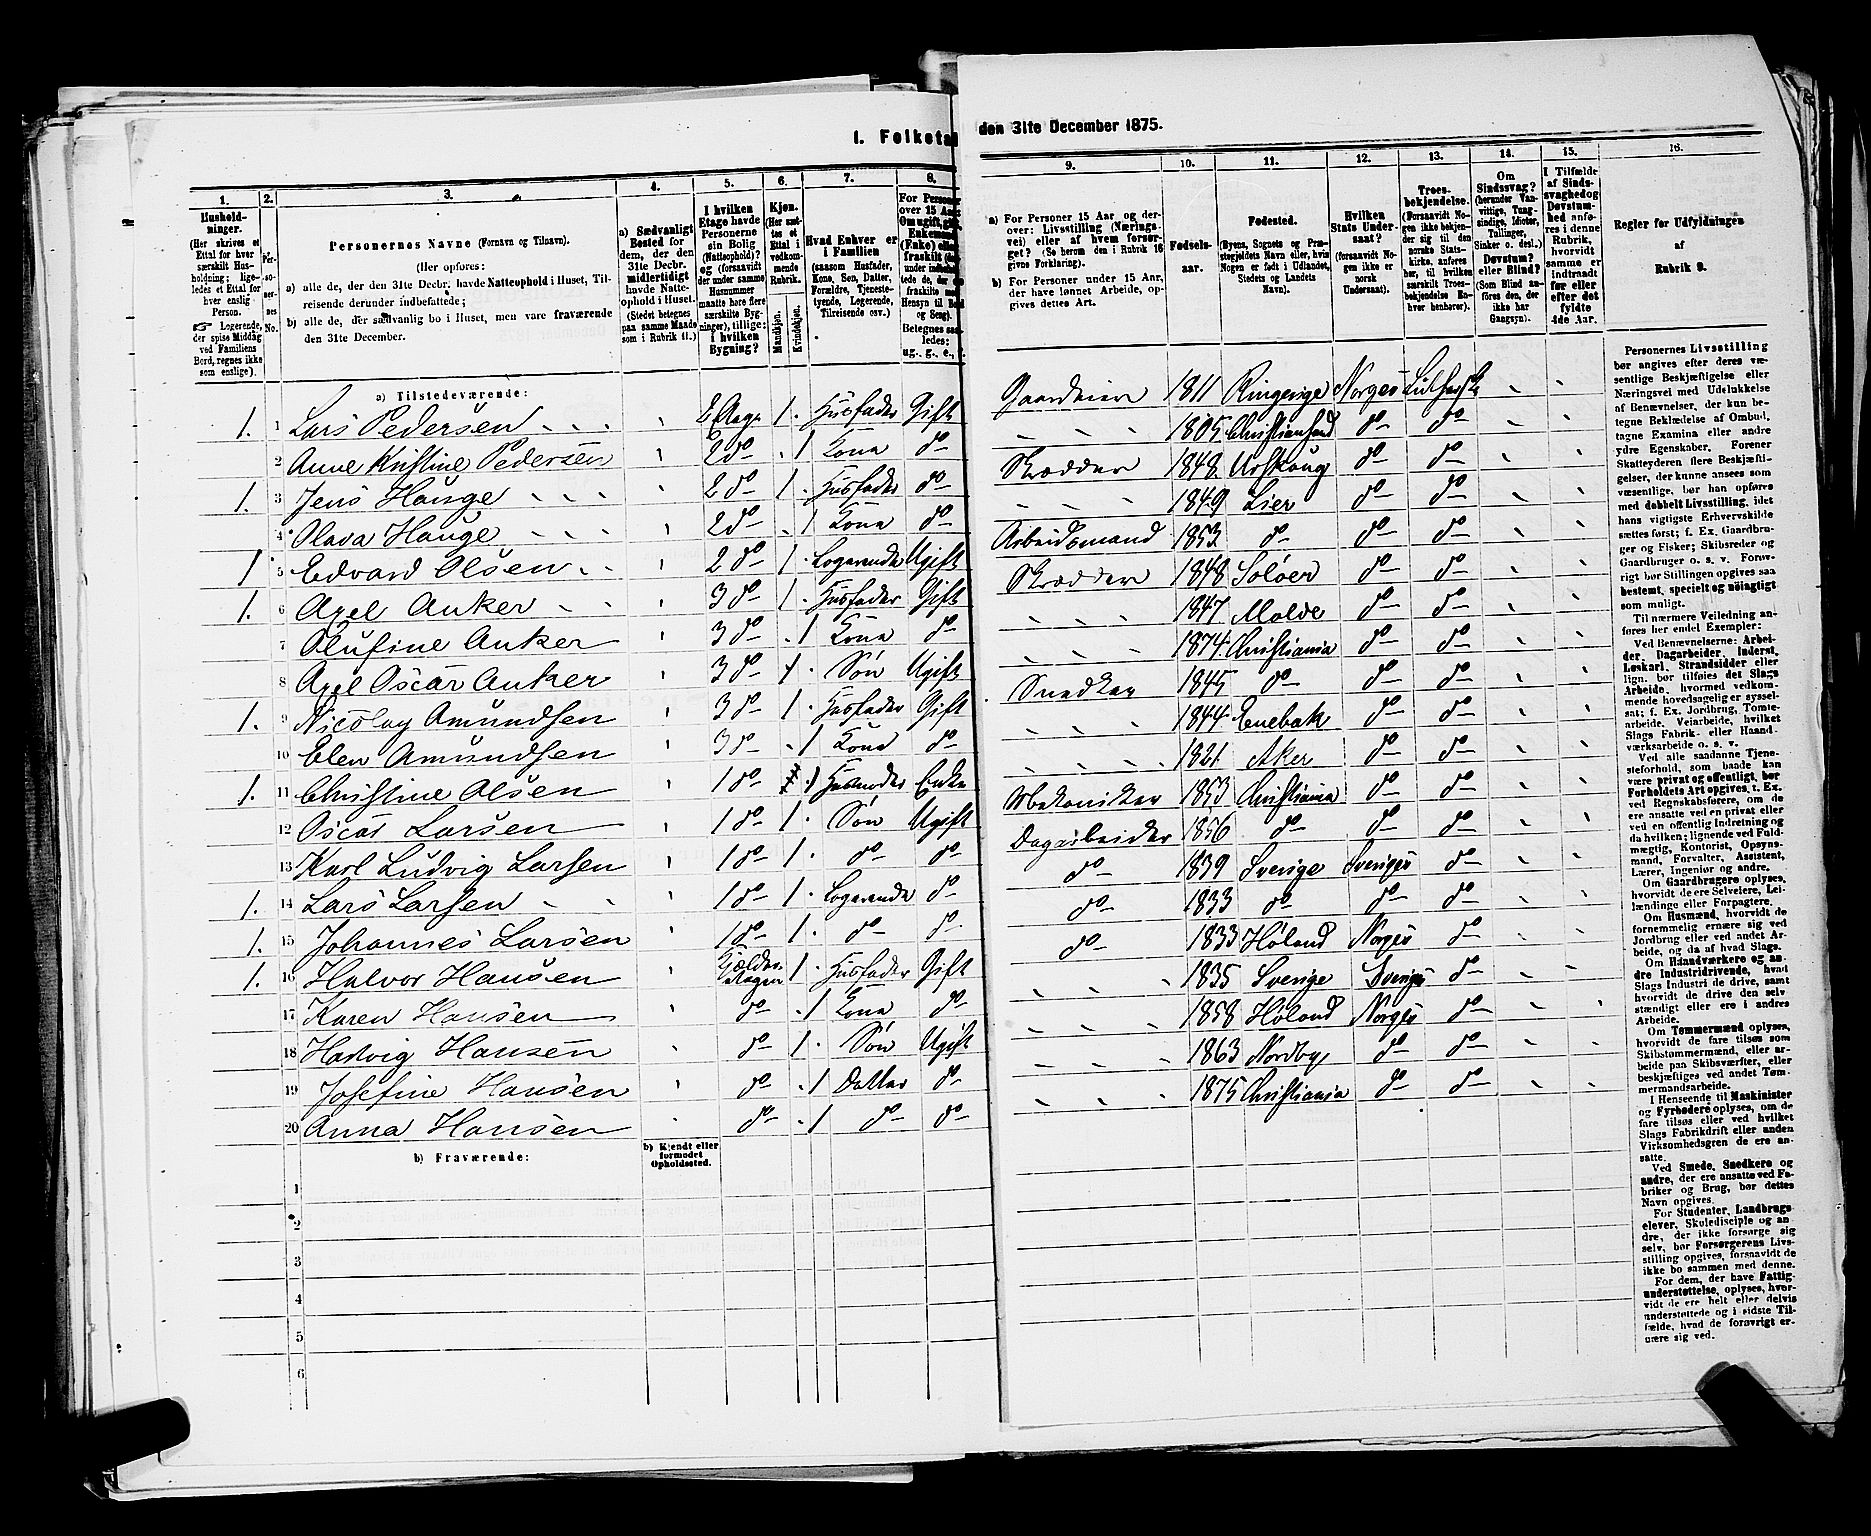 I. Folketal
den 31te December 1875.
1.
Hushold-
ninger.
(Her skrives et
Ettal for hver
særskilt Hus-
holdning; lige-
ledes et Ettal for
hver enslig
Person.
☞ Logerende,
der spise Middag
ved Familiens
Bord, regnes ikke
som enslige).
2.
Per-
so-
ner-
nes
No.
3.
Personernes Navne (Fornavn og Tilnavn).
(Her opføres:
a) alle de, der den 31te Decbr. havde Natteophold i Huset, Til-
reisende derunder indbefattede;
b) alle de, der sædvanlig bo i Huset, men vare fraværende
den 31te December.
4.
a) Sædvanligt
Bosted for
dem, der den
31te Decbr.
midlertidigt
havde Natte-
ophold i Huset.
(Stedet betegnes
paa samme Maade
som i Rubrik 11.)
5.
I hvilken
Etage havde
Personerne
sin Bolig
(Natteophold)?
og (forsaavidt
der under samme
Husnummer
maatte høre flere
særskilte Byg-
ninger), tillige:
i hvilken
Bygning?
6.
Kjøn.
(Her sæt-
tes et
Ettal i
vedkom-
mende
Rubrik.
Mandkjøn.
Kvindekjøn.
7.
Hvad Enhver er
i Familien
(saasom Husfader,
Kone, Søn, Datter,
Forældre, Tjeneste-
tyende, Logerende,
Tilreisende osv.)
8.
For Personer
over 15 Aar
Omugift, gift
Enkemand
(Enke) eller
fraskilt
Betegnes saa-
ledes:
ug., g., e.,
9.
a) For Personer 15 Aar og der-
over: Livsstilling (Nærings-
vei) eller af hvem forsør-
get? (Se herom den i Rubrik 16
givne Forklaring).
b) For Personer under 15 Aar,
der have lønnet Arbeide, op-
gives dettes Art.
10.
Fødsels-
aar.
11.
Fødested.
(Byens, Sognets og Præ-
stegjeldets Navn eller, hvis
Nogen er født i Udlandet,
Stedets og Landets
Navn).
12.
Hvilken
Stats Under-
saat?
(forsaavidt No-
gen ikke er
norsk
Undersaat).
13.
Troes-
bekjendelse.
(Forsaavidt No-
gen ikke bekjen-
der sig til den
norske Stats-
kirke, anføres
her, til hvilken
særskilt Troes-
bekjendelse En-
hver henhører).
14.
Om
Sindssvag?
(herunder Van-
vittige, Tung-
sindige, Idioter,
Tullinger,
Sinker o. desl.)
Døvstum?
eller Blind?
(Som Blind an-
føres den, der
ikke har
Gangsyn).
15.
I Tilfælde
af Sinds-
svaghed og
Døvstum-
hed anfø-
res i denne
Rubrik,
hvorvidt
samme er
indtraadt
før eller
efter det
fyldte
4de Aar.
16.
Regler for Udfyldningen
af
Rubrik 9.
a) Tilstedeværende:
1. 1 Lars Pedersen 2 Etage 1 Husfader Gift Gaardeier 1811 Ringerige Norges Luthersk
2 Anne Kristine Pedersen 2 do 1 Kona do 1805 do do
1. 3 Jens Hauge 2 do 1 Husfader do Skrædder 1848 Urskoug do do
4 Olava Hauge 2 do 1 Kona do 1849 Lier do do
1 5 Edvard Olsen 2 do 1 Logerende Ugift Arbeidsmand 1853 do do do
1. 6 Axel Anker 3 do 1 Husfader Gift Skrædder 1848 Soløer do do
7 Olufine Anker 3 do 1 Kona do 1847 Molde do do
8 Axel Oscar Anker 3 do 1 Søn Ugift 1874 Christiania do do
1. 9 Nicolay Amundsen 3 do 1 Husfader Gift Snedker 1845 do do do
10 Elen Amundsen 3 do 1 Kona do 1844 Enebak do do
1. 11 Christine Olsen 1 do 1 Husmoder Enke 1821 Aker do do
12 Oscar Larsen 1 do 1 Søn Ugift Mekaniker 1853 Christiania do do
13 Karl Ludvig Larsen 1 do 1 do do Dagarbeider 1856 do do do
1. 14 Lars Larsen 1 do 1 Logerende do do 1839 Sverige Sveriges do
1. 15 Johannes Larsen 1 do 1 do do do 1833 do do do
1. 16 Halvor Hansen Kjelder etagen 1 Husfader Gift do 1833 Høland Norges do
17 Karen Hansen do 1 Kona do 1835 Sverige Sveriges do
18 Hartvig Hansen do 1 Søn Ugift 1858 Høland Norges do
19 Josefine Hansen do 1 Datter do 1863 Nordby do do
20 Anna Hansen do 1 do do 1875 Christiania do do
b) Fraværende:
b) Kjendt eller
formodet
Opholdssted.
1
2
3
4
5
6
Personernes Livsstilling
bør angives efter deres væ-
sentlige Beskjæftigelse eller
Næringsvei med Udelukkelse
af Benævnelser, der kun be-
tegne Beklædelse af Ombud,
tagne Examina eller andre
ydre Egenskaber. Forener
Skatteyderen flere Beskjæfti-
gelser, der kunne ansees som
væsentlige, bør han opføres
med dobbelt Livsstilling, idet
hans vigtigste Erhvervskilde
sættes først; f. Ex. Gaardbru-
ger og Fisker; Skibsreder og
Gaardbruger o. s. v. Forøv-
rigt bør Stillingen opgives saa
bestemt, specielt og nøiagtigt
som muligt.
Til nærmere Veiledning an-
føres her endel Exempler:
Ved Benævnelserne: Arbei-
der, Dagarbeider, Inderst,
Løskarl, Strandsidder eller
lign. bør tilføies det Slags
Arbeide, hvormed vedkom-
mende hovedsagelig er syssel-
sat; f. Ex. Jordbrug, Tomte-
arbeide, Veiarbeide, hvilket
Slags Fabrik- eller Haand-
værksarbeide o. s. v.
Ved alle saadanne Tjene-
steforhold, som baade kan
være privat og offentligt, bør
Forholdets Art opgives, t. Ex.
ved Regnskabsførere, om de
ere ansatte ved en privat eller
ved en offentlig Indretning og
da hvilken; lignende ved Fuld-
mægtig, Kontorist, Opsyns-
mand, Forvalter, Assistent,
Lærer, Ingeniør og andre.
Om Gaardbrugere oplyses,
hvorvidt de ere Selveiere, Lei-
lændinge eller Forpagtere.
Om Husmænd, hvorvidt de
fornemmelig ernære sig ved
Jordbrug eller ved andet Ar-
beide, og da af hvad Slags.
Om Haandværkere og an-
dre Industridrivende, hvad
Slags Industri de drive, samt
hvorvidt de drive den selv-
stændigt eller ere i andres
Arbeide.
Om Tømmermænd oplyses,
hvorvidt de fare tilsøs som
Skibstømmermænd, eller ar-
beide paa Skibsværfter, eller
beskjæftiges ved andet Tøm-
mermandsarbeide.
I Henseende til Maskinister
og Fyrbødere oplyses, om de
fare tilsøs eller ved hvilket
Slags Fabrikdrift eller anden
Virksomhedsgren de ere an-
satte.
Ved Smede, Snedkere og
andre, der ere ansatte ved Fa-
briker og Brug, bør dettes
Navn opgives.
For Studenter, Landbrugs-
elever, Skoledisciple og an-
dre, der ikke forsørge sig
selv, bør Forsørgerens Livs-
stilling opgives, forsaavidt de
ikke bo sammen med denne.
For dem, der have Fattig-
understøttelse, oplyses, hvor-
vidt de ere helt eller delvis
understøttede og i sidste Til-
fælde, hvad de forøvrigt er-
nære sig ved.